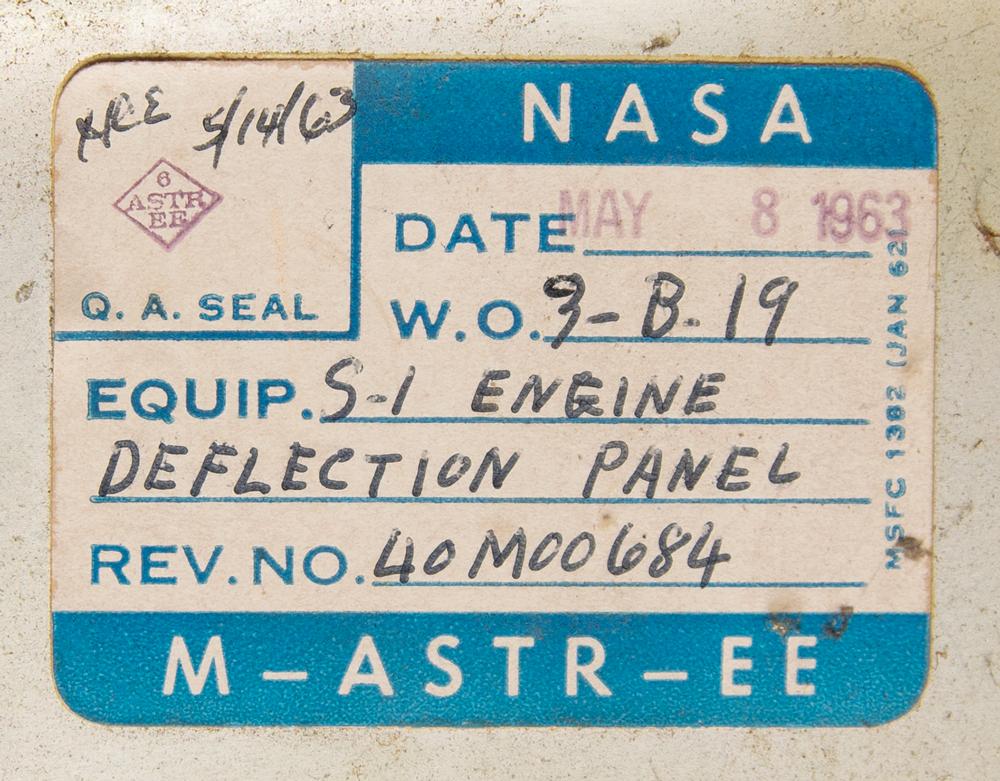 5/14/63
6
ASTR
EE
Q. A. SEAL
NASA
DATE MAY 8 1963
W.O. 3-B-19
EQUIP. S-1 ENGINE
DEFLECTION PANEL
REV. NO. 40M00684
MSFC 1302 (JAN 62)
M-ASTR-EE